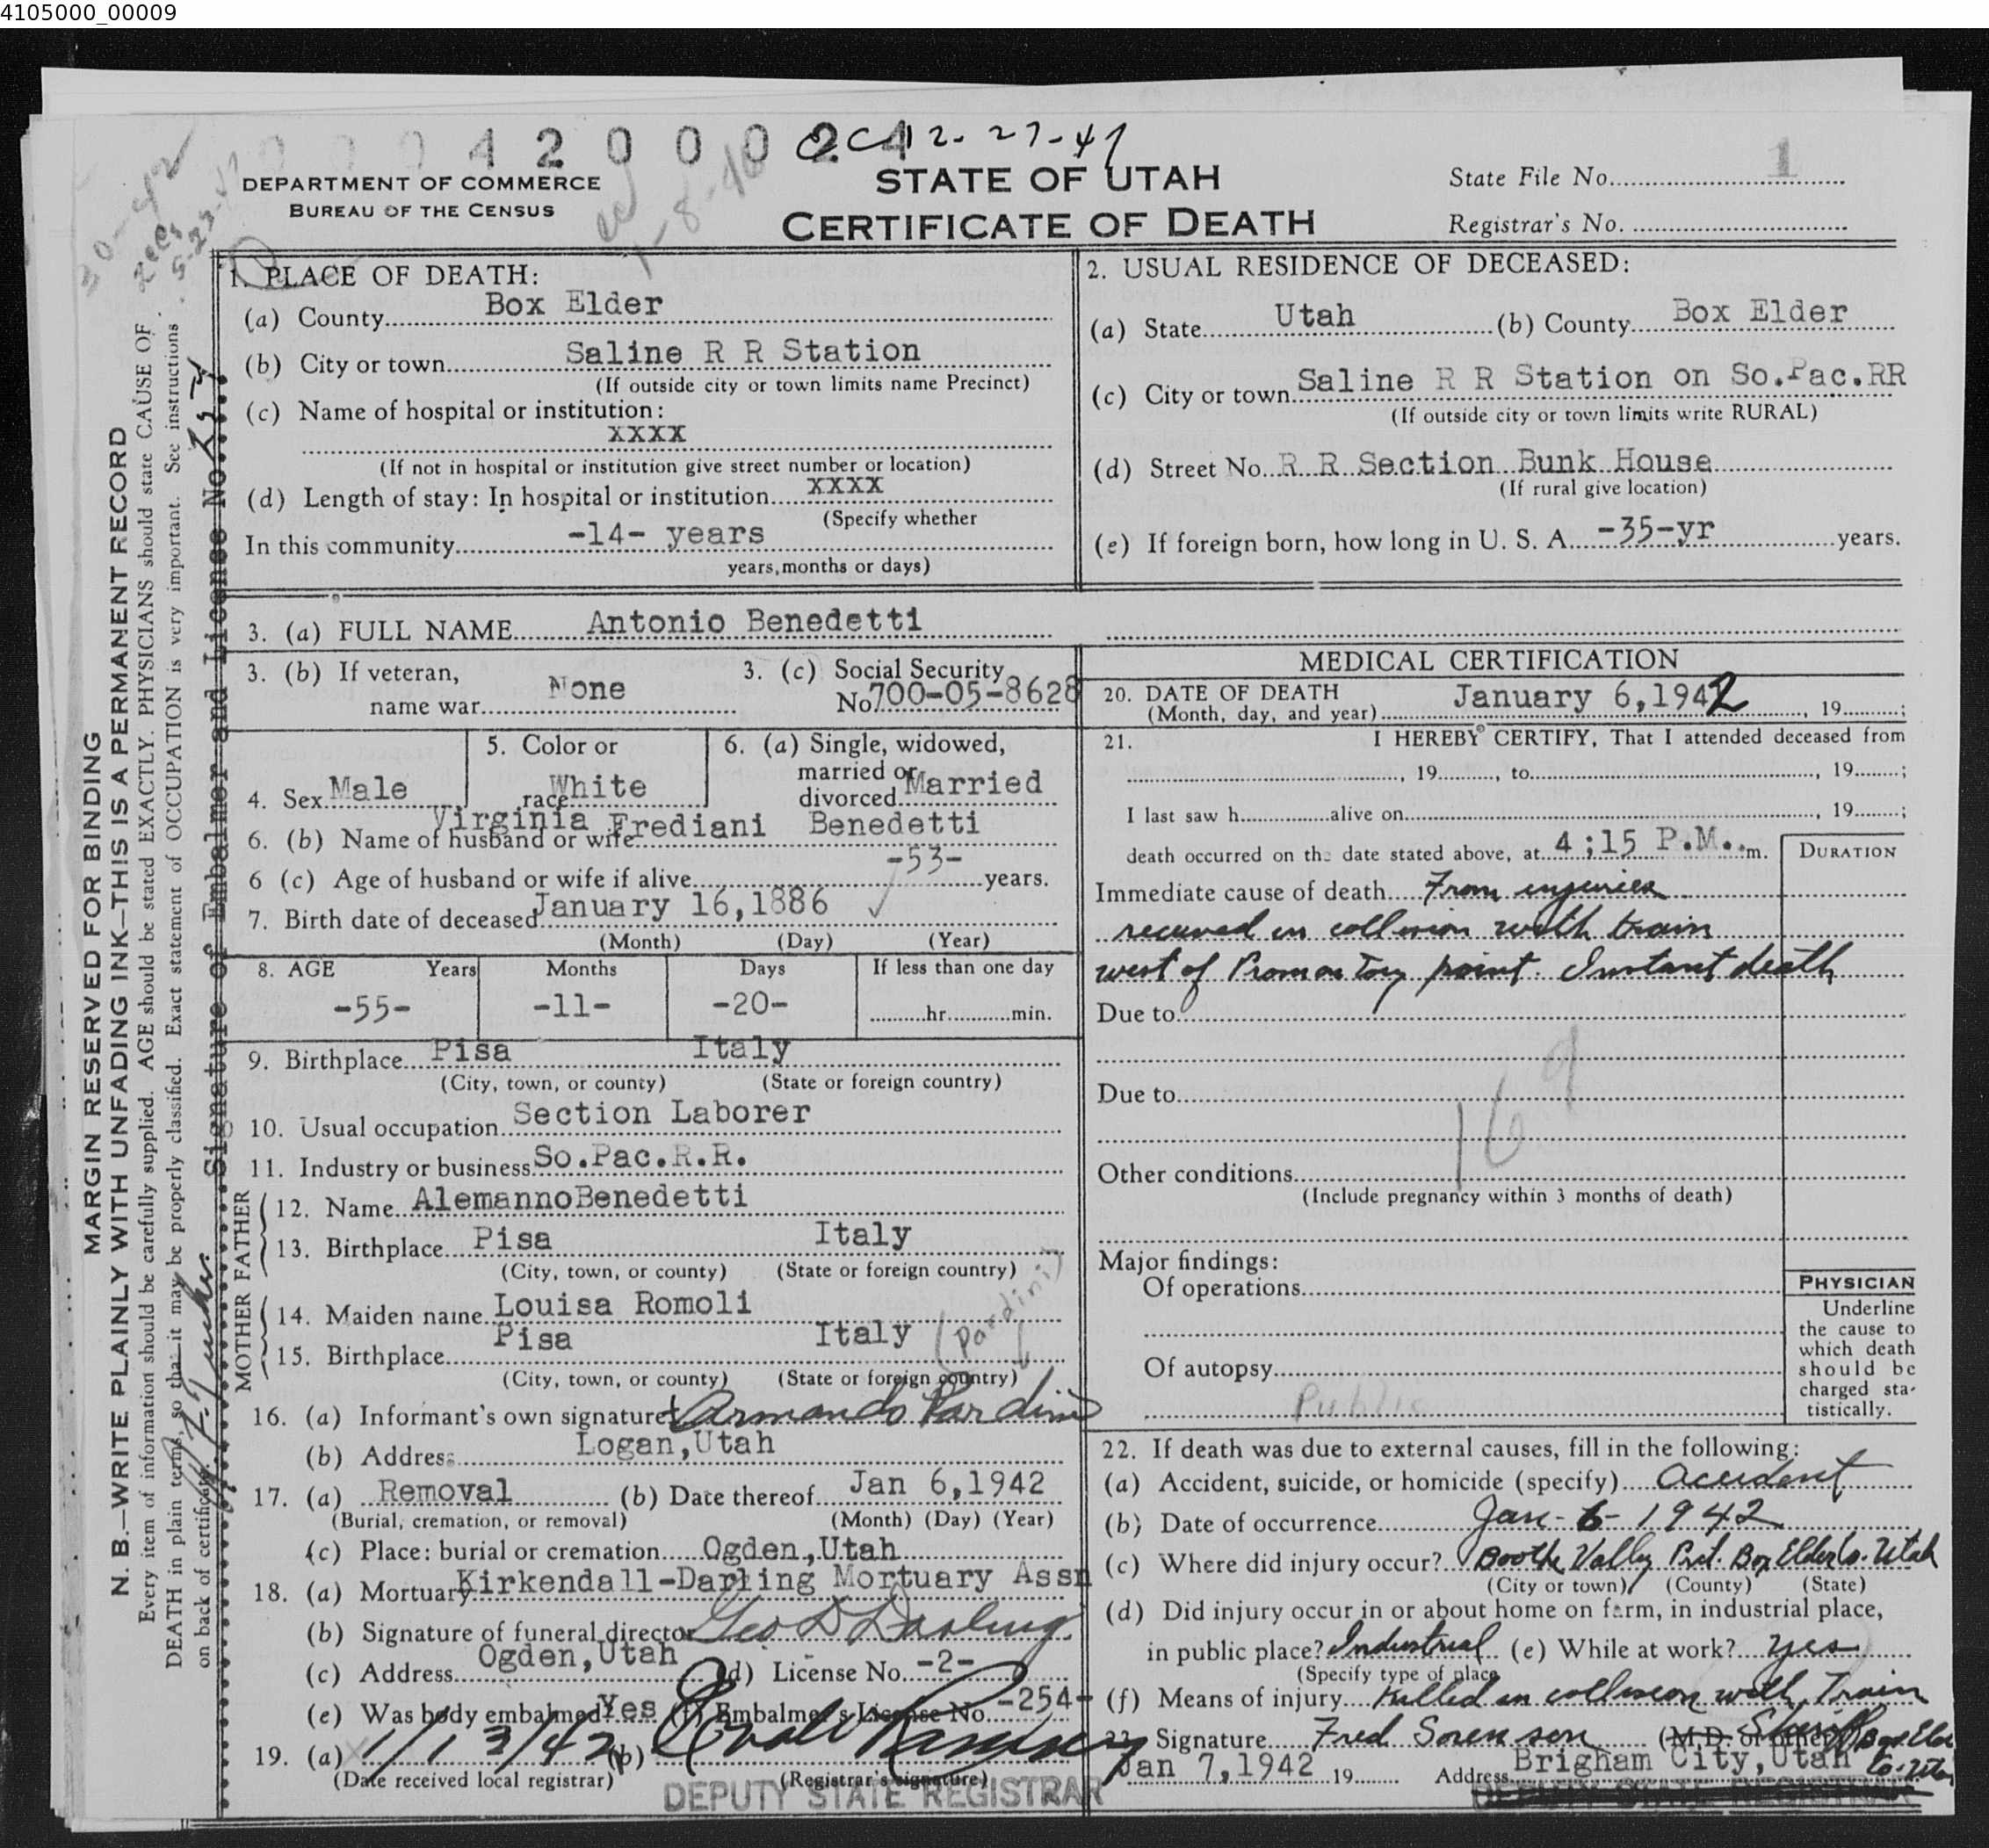 4105000_00009
4 2 0 0 0 2 4
12-27-47
DEPARTMENT OF COMMERCE
BUREAU OF THE CENSUS
STATE OF UTAH
CERTIFICATE OF DEATH
State File No. 1
Registrar's No.
1. PLACE OF DEATH:
(a) County Box Elder
(b) City or town Saline R R Station
(If outside city or town limits name Precinct)
(c) Name of hospital or institution:
XXXX
(If not in hospital or institution give street number or location)
(d) Length of stay: In hospital or institution XXXX
(Specify whether
In this community -14- years
years, months or days)
2. USUAL RESIDENCE OF DECEASED:
(a) State Utah (b) County Box Elder
(c) City or town Saline R R Station on So.Pac.RR
(If outside city or town limits write RURAL)
(d) Street No. R R Section Bunk House
(If rural give location)
(e) If foreign born, how long in U. S. A. -35-yr years.
3. (a) FULL NAME Antonio Benedetti
3. (b) If veteran, name war None
3. (c) Social Security No 700-05-8628
4. Sex Male
5. Color or race White
6. (a) Single, widowed, married or divorced Married
6. (b) Name of husband or wife Virginia Frediani Benedetti
6 (c) Age of husband or wife if alive -53- years.
7. Birth date of deceased January 16,1886
(Month) (Day) (Year)
8. AGE Years Months Days If less than one day
-55- -11- -20- hr. min.
9. Birthplace Pisa Italy
(City, town, or county) (State or foreign country)
10. Usual occupation Section Laborer
11. Industry or business So.Pac.R.R.
FATHER
12. Name AlemannoBenedetti
13. Birthplace Pisa Italy
(City, town, or county) (State or foreign country)
MOTHER
14. Maiden name Louisa Romoli
15. Birthplace Pisa Italy (Pardini)
(City, town, or county) (State or foreign country)
16. (a) Informant's own signature Armando Pardini
(b) Address Logan,Utah
17. (a) Removal (b) Date thereof Jan 6,1942
(Burial, cremation, or removal) (Month) (Day) (Year)
(c) Place: burial or cremation Ogden,Utah
18. (a) Mortuary Kirkendall-Darling Mortuary Assn
(b) Signature of funeral director Geo D Darling
(c) Address Ogden,Utah (d) License No. -2-
(e) Was body embalmed? Yes (f) Embalmer's License No. -254-
19. (a) 1/13/42 (b)
(Date received local registrar) (Registrar's signature)
DEPUTY STATE REGISTRAR
MEDICAL CERTIFICATION
20. DATE OF DEATH
(Month, day, and year) January 6,1942, 19 ;
21. I HEREBY CERTIFY, That I attended deceased from
, 19 , to , 19 ;
I last saw h alive on , 19 ;
death occurred on the date stated above, at 4;15 P.M. m.
DURATION
Immediate cause of death From injuries
received in collision with train
west of Promontory point. Instant death
Due to
Due to
169
Other conditions
(Include pregnancy within 3 months of death)
Major findings:
Of operations
Of autopsy
Public
PHYSICIAN
Underline
the cause to
which death
should be
charged sta-
tistically.
22. If death was due to external causes, fill in the following:
(a) Accident, suicide, or homicide (specify) accident
(b) Date of occurrence Jan-6-1942
(c) Where did injury occur? Booth Valley Prct. Box Elder Co. Utah
(City or town) (County) (State)
(d) Did injury occur in or about home on farm, in industrial place,
in public place? Industrial (e) While at work? yes
(Specify type of place
(f) Means of injury Killed in collision with Train
23. Signature Fred Sorenson (M.D. or other) Sheriff Box Elder Co. Utah
Jan 7,1942 19 Address Brigham City,Utah
DEPUTY STATE REGISTRAR
MARGIN RESERVED FOR BINDING
N. B.—WRITE PLAINLY WITH UNFADING INK—THIS IS A PERMANENT RECORD
Every item of information should be carefully supplied. AGE should be stated EXACTLY. PHYSICIANS should state CAUSE OF
DEATH in plain terms, so that it may be properly classified. Exact statement of OCCUPATION is very important. See instructions
on back of certificate.
Signature of Embalmer and License No.